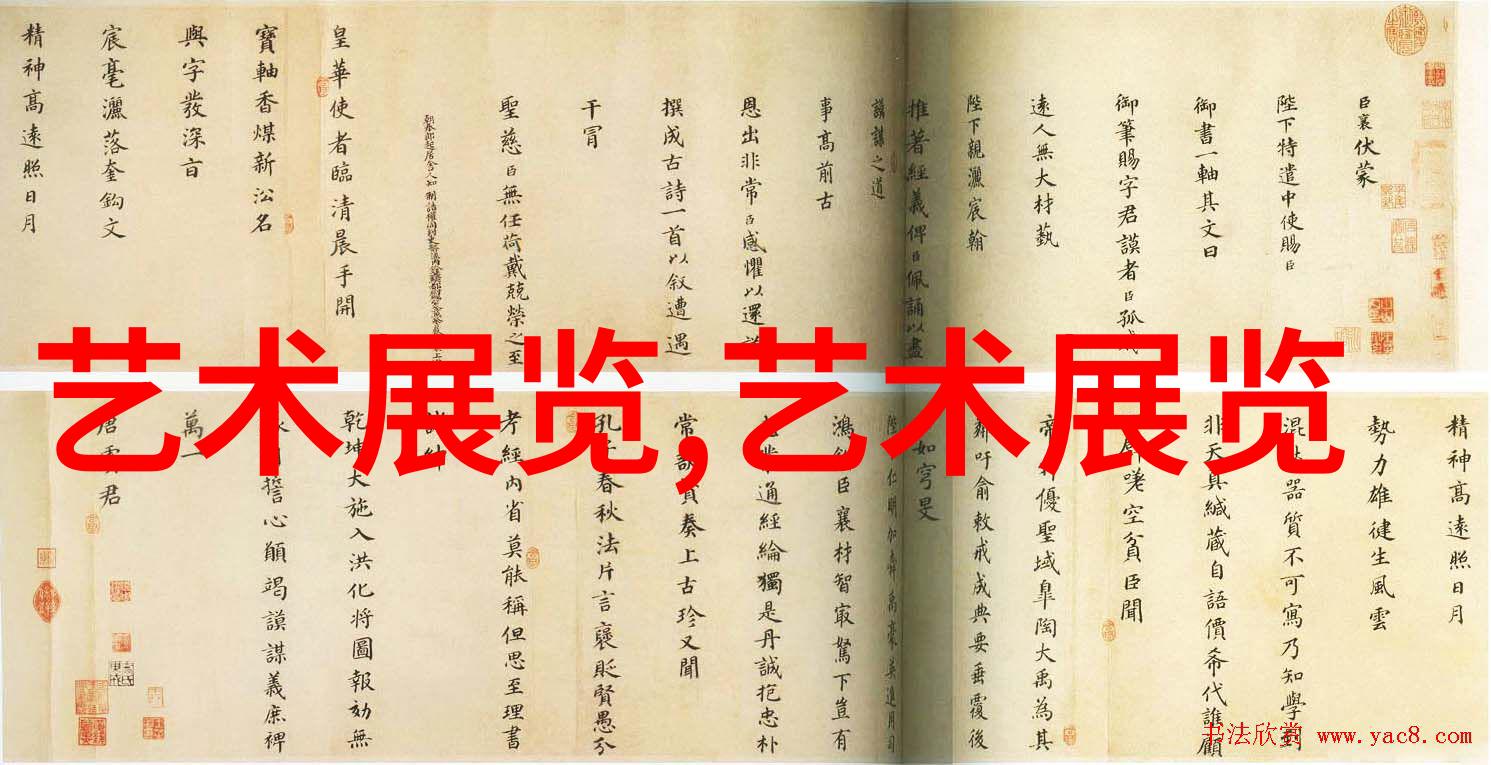 臣襄伏蒙
陛下特遣中使賜臣
御書一軸其文曰
御筆賜字君謨者臣孤
遠人無大材藝
陛下親灑宸翰
推著經義俾臣佩誦以盡
謀謨之道
事高前古
恩出非常臣感懼以還
撰成古詩一首以叙遭遇
干冒
聖慈臣無任荷戴兢榮之至
皇華使者臨清晨手開
寶軸香煤新沿名
與字發深旨
宸毫灑落奎鈎文
精神高遠照日月
艺术展览,艺术展览
精神高遠照日月
勢力雄健生風雲
混 器質不可寫乃知學到
非天真緘藏自語價希代誰顧
嘆空貧臣聞
帝 優聖域臯陶大禹為其
吁俞敕戒成典要垂覆後
如穹旻
陛 仁明加 禹豪英進用司
鴻 臣襄材智最駑下豈有
通經綸獨是丹誠抱忠朴
常 質奏上古珍又聞
孔子春秋法片言褒貶賢愚分
考經內省莫能稱但思至理書
紳
乾坤大施入洪化將圖報効無
誓心願竭謨謀義庶裨
萬一
唐虞君
书法欣赏 www.yac8.com